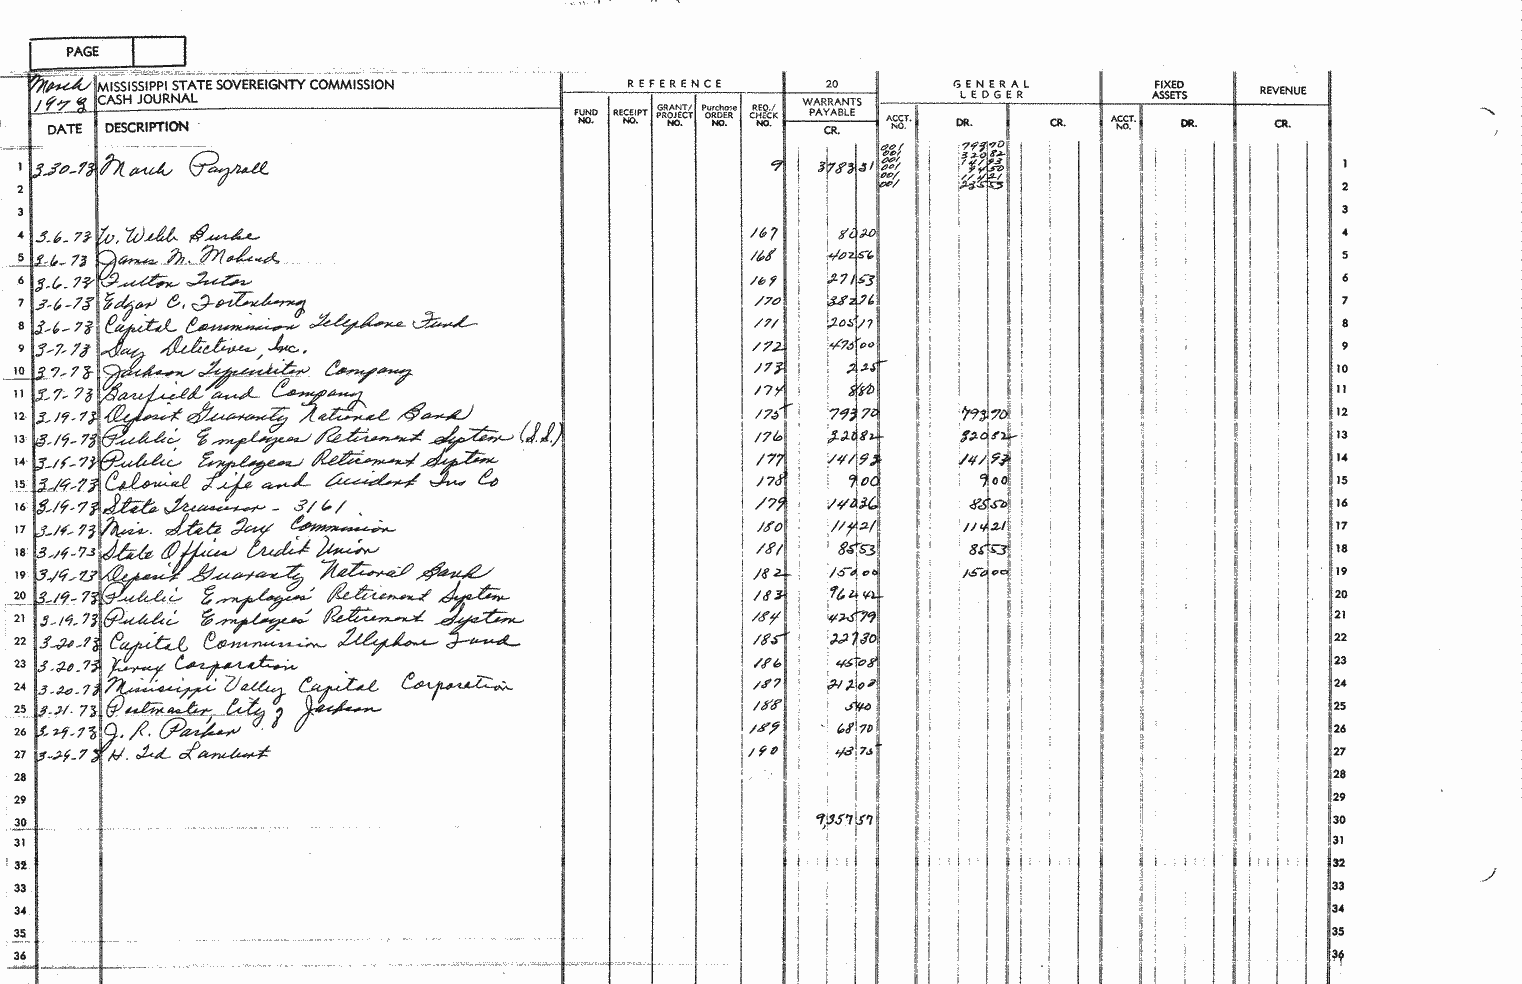 PAGE
March 1973 MISSISSIPPI STATE SOVEREIGNTY COMMISSION
CASH JOURNAL
REFERENCE 20 GENERAL LEDGER FIXED ASSETS REVENUE
DATE DESCRIPTION FUND NO. RECEIPT NO. GRANT/PROJECT NO. Purchase ORDER NO. REQ./CHECK NO. WARRANTS PAYABLE CR. ACCT. NO. DR. CR. ACCT. NO. DR. CR.
001 793 70
001 320 82
001 141 93
001
001 114 21
001 235 53
1 3-30-73 March Payroll 9 3783 31 1
2 2
3 3
4 3-6-73 W. Webb Burke 167 80 20 4
5 3-6-73 James M. 168 402 56 5
6 3-6-73 Fulton Tutor 169 271 53 6
7 3-6-73 Edgar C. Fortenberry 170 382 76 7
8 3-6-73 Capital Commission Telephone Fund 171 205 17 8
9 3-7-73 Day Detectives, Inc. 172 475 00 9
10 3-7-73 Jackson Typewriter Company 173 2 25 10
11 3-7-73 Barefield and Company 174 8 80 11
12 3-19-73 Deposit Guaranty National Bank 175 793 70 793 70 12
13 3-19-73 Public Employees Retirement System (S.S.) 176 320 82 320 82 13
14 3-19-73 Public Employees Retirement System 177 141 93 141 93 14
15 3-19-73 Colonial Life and Accident Ins Co 178 9 00 9 00 15
16 3-19-73 State Treasurer - 3161 179 140 36 85 50 16
17 3-19-73 Miss. State Tax Commission 180 114 21 114 21 17
18 3-19-73 State Offices Credit Union 181 85 53 85 53 18
19 3-19-73 Deposit Guaranty National Bank 182 150 00 150 00 19
20 3-19-73 Public Employees' Retirement System 183 962 42 20
21 3-19-73 Public Employees' Retirement System 184 425 79 21
22 3-20-73 Capital Commission Telephone Fund 185 227 30 22
23 3-20-73 Xerox Corporation 186 45 08 23
24 3-20-73 Mississippi Valley Capital Corporation 187 24
25 3-21-73 Postmaster, City of Jackson 188 5 40 25
26 3-29-73 J. R. Parker 189 68 70 26
27 3-29-73 H. Ted Lambert 190 43 75 27
28 28
29 29
30 9,357 57 30
31 31
32 32
33 33
34 34
35 35
36 36